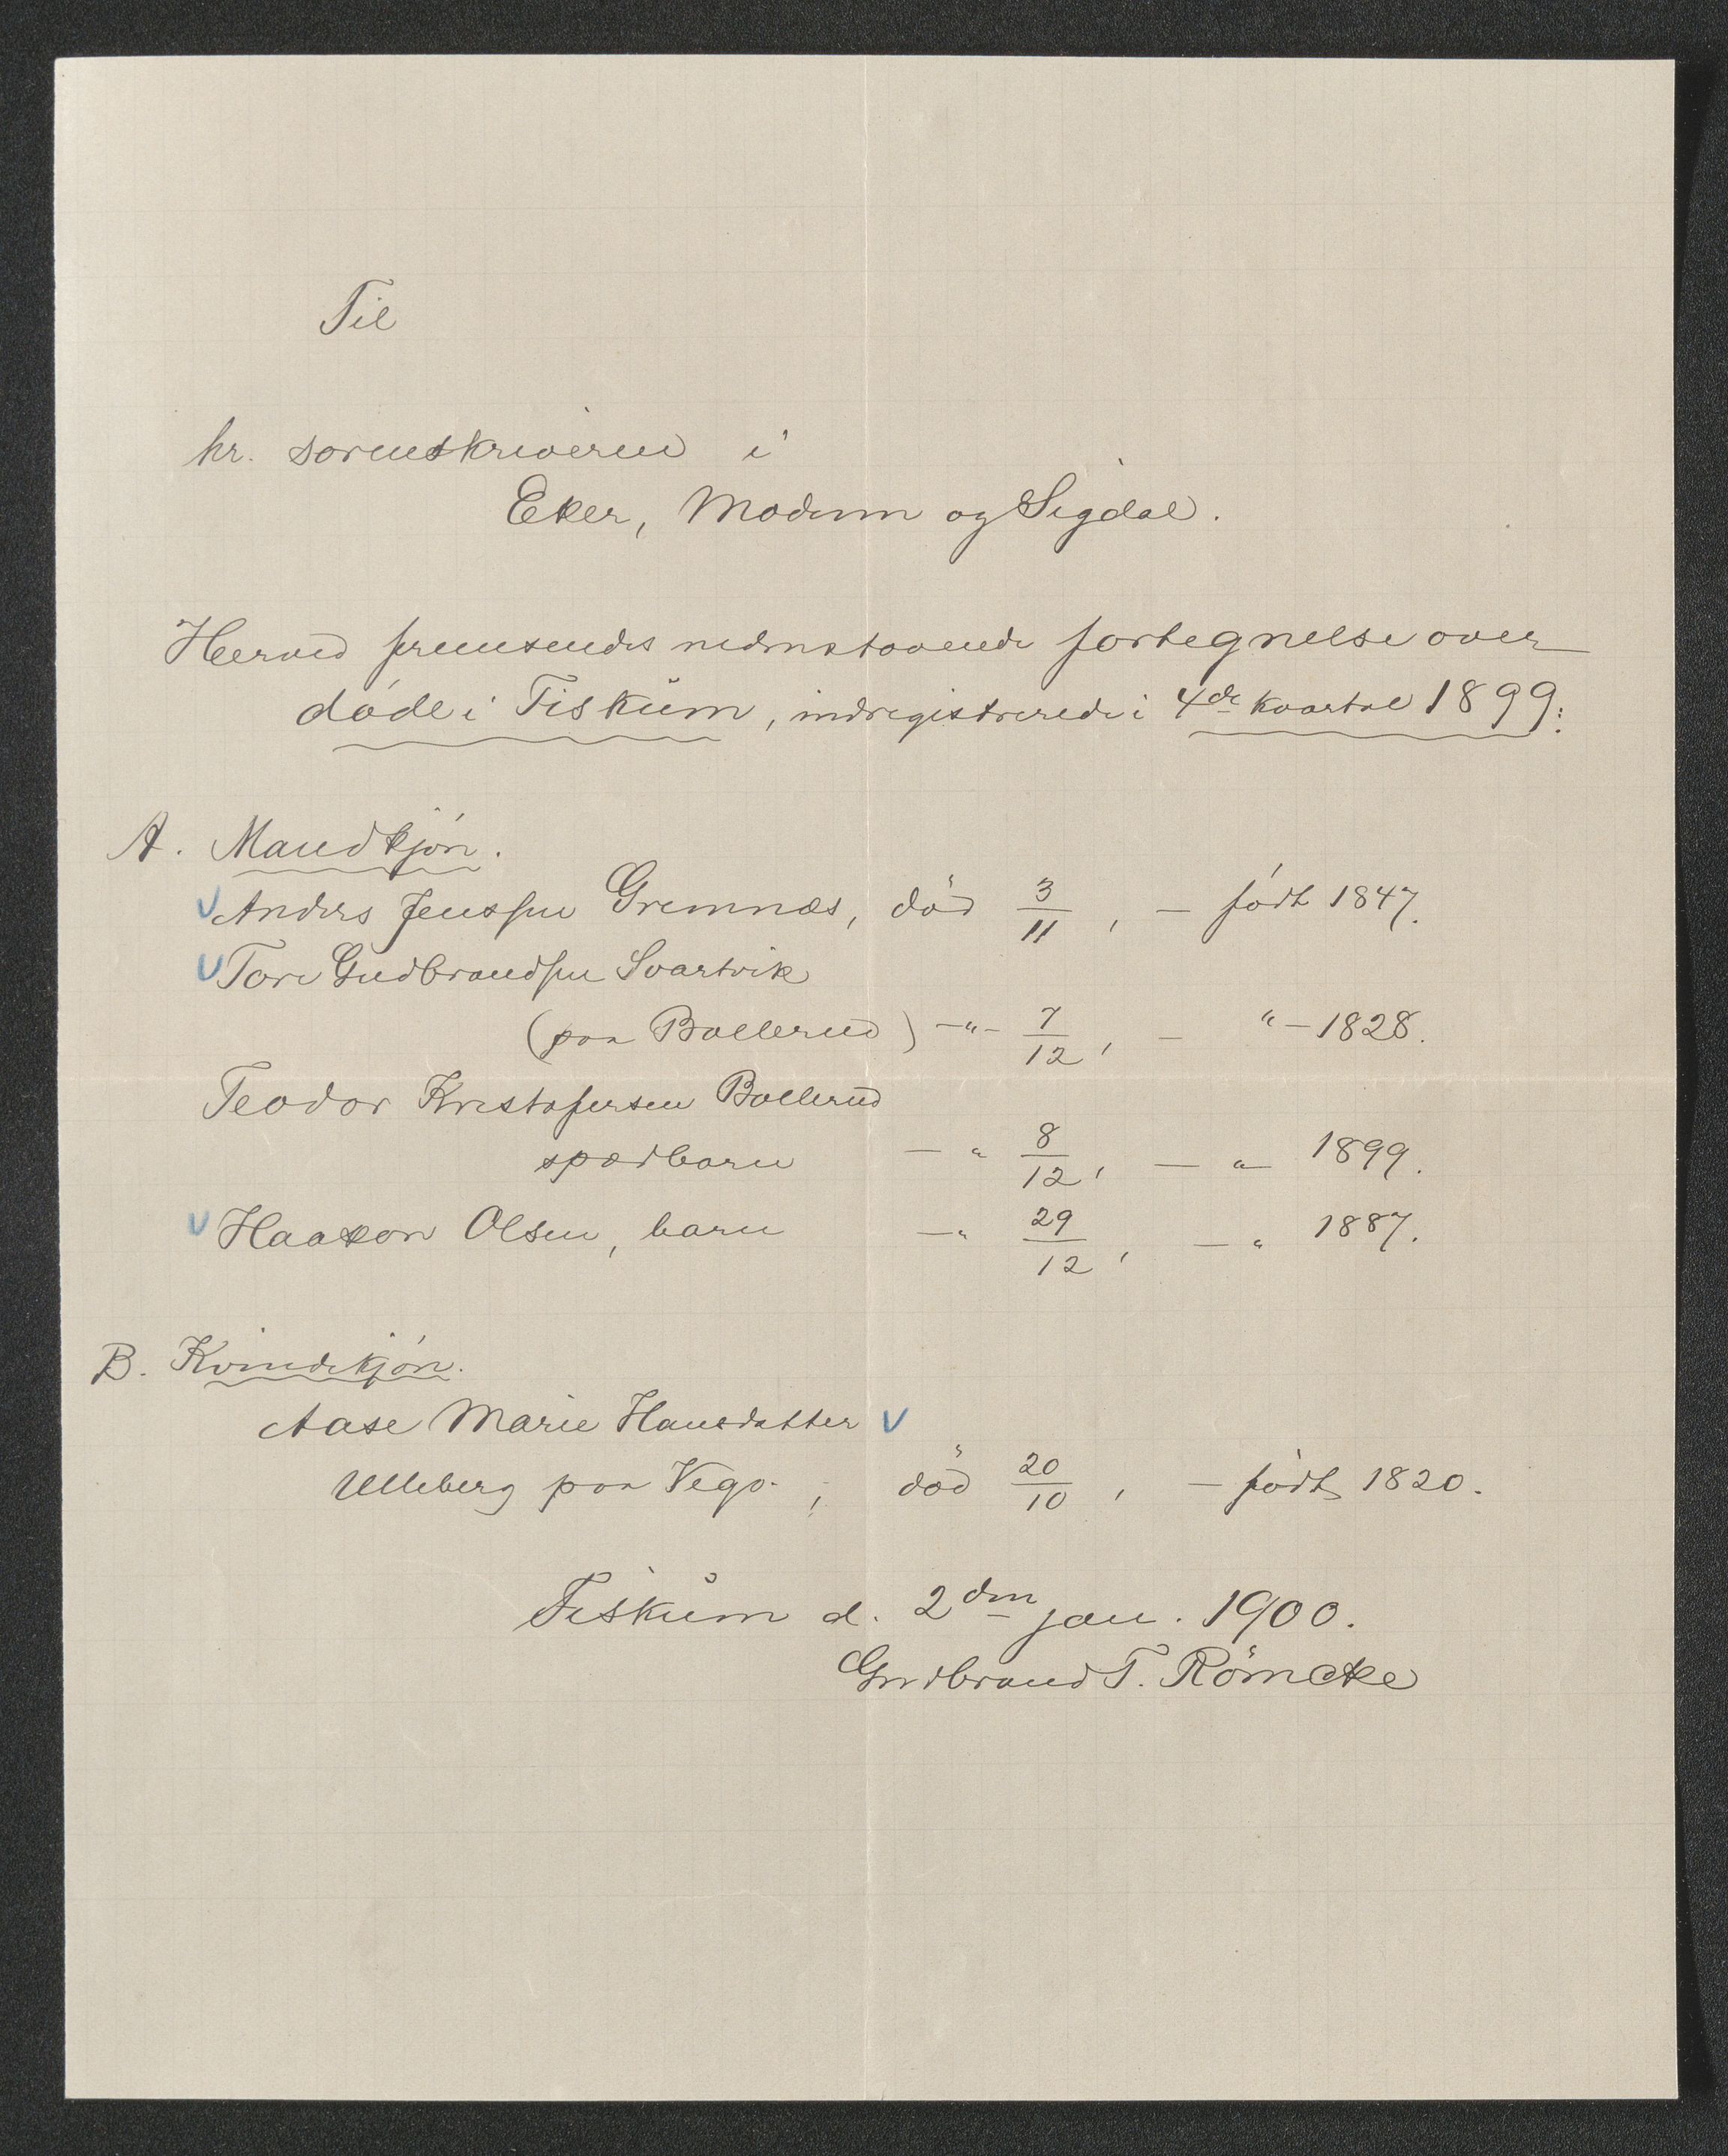 Til
hr. sorenskriveren i
Eker, Modum og Sigdal.
Herved fremsendes nedenstaaende fortegnelse over
døde i Fiskum, indregistrerede i 4de kvartal 1899:
A. Mandkjøn.
Anders Jenssen Gremnæs, død 3/11, – født 1847.
Tore Gudbrandsen Svartvik
(paa Bollerud) –"– 7/12, – "– 1828.
Teodor Kristofersen Bollerud
spædbarn – " 8/12, – " – 1899.
Haakon Olsen, barn – " 29/12, – " 1887.
B. Kvindekjøn.
Aase Marie Hansdatter
Ulleberg paa Vego. , død 20/10, – født 1820.
Fiskum d. 2den jan. 1900.
Gudbrand T. Römcke